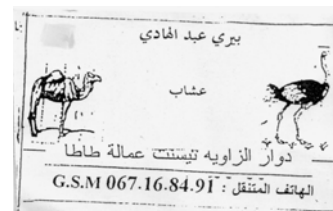 بيري عبد الهادي
عشاب
دوار الزاويه تيسنت عمالة طاطا
الهاتف المتنقل : G.S.M 067.16.84.91